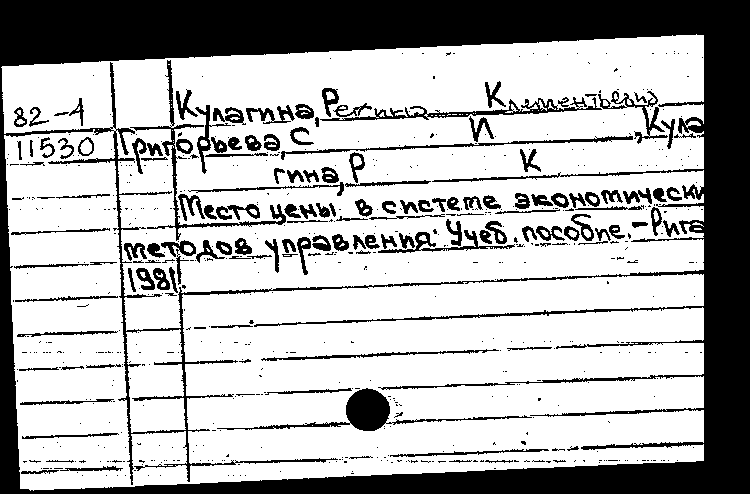 82-4 Кулагина, Регина Клементьевна
11530 Григорьева, С И , Кула
гина, Р К
Место цены в системе экономически
методов управления: Учеб. пособие. - Рига
1981.